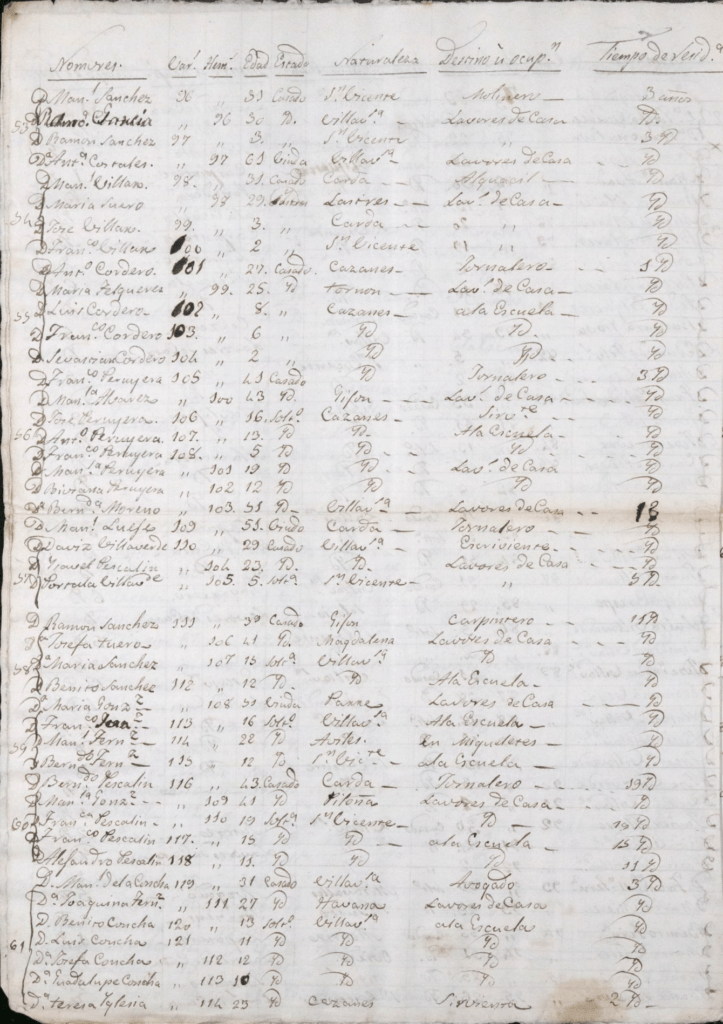 Nomvres. Var.s Hem.s Edad Estado Naturaleza Destino ú ocup.n Tiempo de resid.a
D Man.l Sanchez 96 ,, 31 Casado S.n Vicente Molinero 3 años
53 Garcia ,, 96 30 Yd. Villav.sa Lavores de Casa Yd.
D Ramon Sanchez 97 ,, 3. ,, S.n Vicente ,, 3 Yd
D.a Ant.a Costales. ,, 97 61 Viuda Villav.sa Lavores de Casa Yd
D Man.l Villar. 98. ,, 31. Casado Carda Alguacil Yd
D Maria Suero ,, 98 29. Lastres Lav.s de Casa Yd
54 D Jose Villar. 99. ,, 3. ,, Carda ,, ,, Yd
D Fran.co Villar 100 ,, 2 ,, S.n Vicente ,, ,, Yd
D Ant.o Cordero. 101 ,, 27. Casado. Cazanes Jornalero 3 Yd
D Maria Felgueres ,, 99. 25. Yd Tornon Lav.s de Casa Yd
55 D Luis Cordero 102 ,, 8. ,, Cazanes ala Escuela Yd
D Fran.co Cordero 103. ,, 6 ,, Yd Yd. Yd
D Sevastian Cordero 104 ,, 2 ,, Yd Yd Yd
D Fran.co Peruyera 105 ,, 41 Casado Yd Jornalero 3 Yd
D Man.la Alvarez ,, 100 43 Yd Gijon Lav.s de Casa Yd
D Jose Peruyera. 106 ,, 16. Solt.o Cazanes Sirv.te Yd
56 D Ant.o Peruyera 107. ,, 13. Yd Yd Ala Escuela Yd
D Fran.co Peruyera 108. ,, 5 Yd Yd Yd Yd
D Man.la Peruyera ,, 101 19 Yd Yd Lav.s de Casa Yd
D Biviana Peruyera ,, 102 12 Yd Yd Yd Yd
D.a Bern.da Moreno ,, 103. 31 Yd Villav.sa Lavores de Casa 13
D Man.l Luege 109 ,, 51. Viudo Carda Jornalero Yd
D Daviz Villaverde 110 ,, 29 Casado Villav.sa Escriviente Yd
D Ysavel Pescalin ,, 104 23. Yd Yd Lavores de Casa Yd
57 D Villav.de ,, 105. 5. Solt.a S.n Vicente ,, 5 Yd.
D Ramon Sanchez 111 ,, 39 Casado Gijon Carpintero 11 Yd
D Josefa Tuero ,, 106 41 Yd. Magdalena Lavores de Casa Yd
58 D.a Maria Sanchez ,, 107 15 Solt.a Villav.sa Yd Yd
D Benito Sanchez 112 ,, 12 Yd Yd Ala Escuela Yd
D.a Maria Gonz.z ,, 108 51 Viuda Parre Lavores de Casa Yd
D Fran.co 113 ,, 16 Solt.o Villav.sa Ala Escuela Yd
59 D Man.l Fern.z 114 ,, 22 Yd Aviles. en Migueletes Yd
D Bern.do Fern.z 115 ,, 12 Yd S.n Vic.te ala Escuela Yd
D Bern.do Pescalin 116 ,, 43. Casado Carda Jornalero 19 Yd
D Man.la Gonz.z ,, 109 41 Yd Piloña Lavores de Casa Yd
60 D Fran.ca Pescalin ,, 110 19 Solt.a S.n Vicente Yd 19 Yd
D Fran.co Pescalin 117. ,, 15 Yd Yd ala Escuela 15 Yd
D Alejandro Pescalin 118 ,, 11. Yd Yd Yd 11 Yd
D. Man.l de la Concha 119 ,, 31 Casado Villav.sa Avogado 3 Yd
D.a Joaquina Fern.z ,, 111 27 Yd Havana Lavores de Casa Yd
D. Benito Concha 120 ,, 13 Solt.o Villav.sa ala Escuela Yd
61 D. Luis Concha 121 ,, 11 Yd Yd Yd Yd
D.a Josefa Concha ,, 112 12 Yd Yd Yd Yd
D.a Guadalupe Concha ,, 113 10 Yd Yd Yd Yd
D.a Teresa Yglesia ,, 114 23 Yd Cazanes Sirvienta 2 Yd